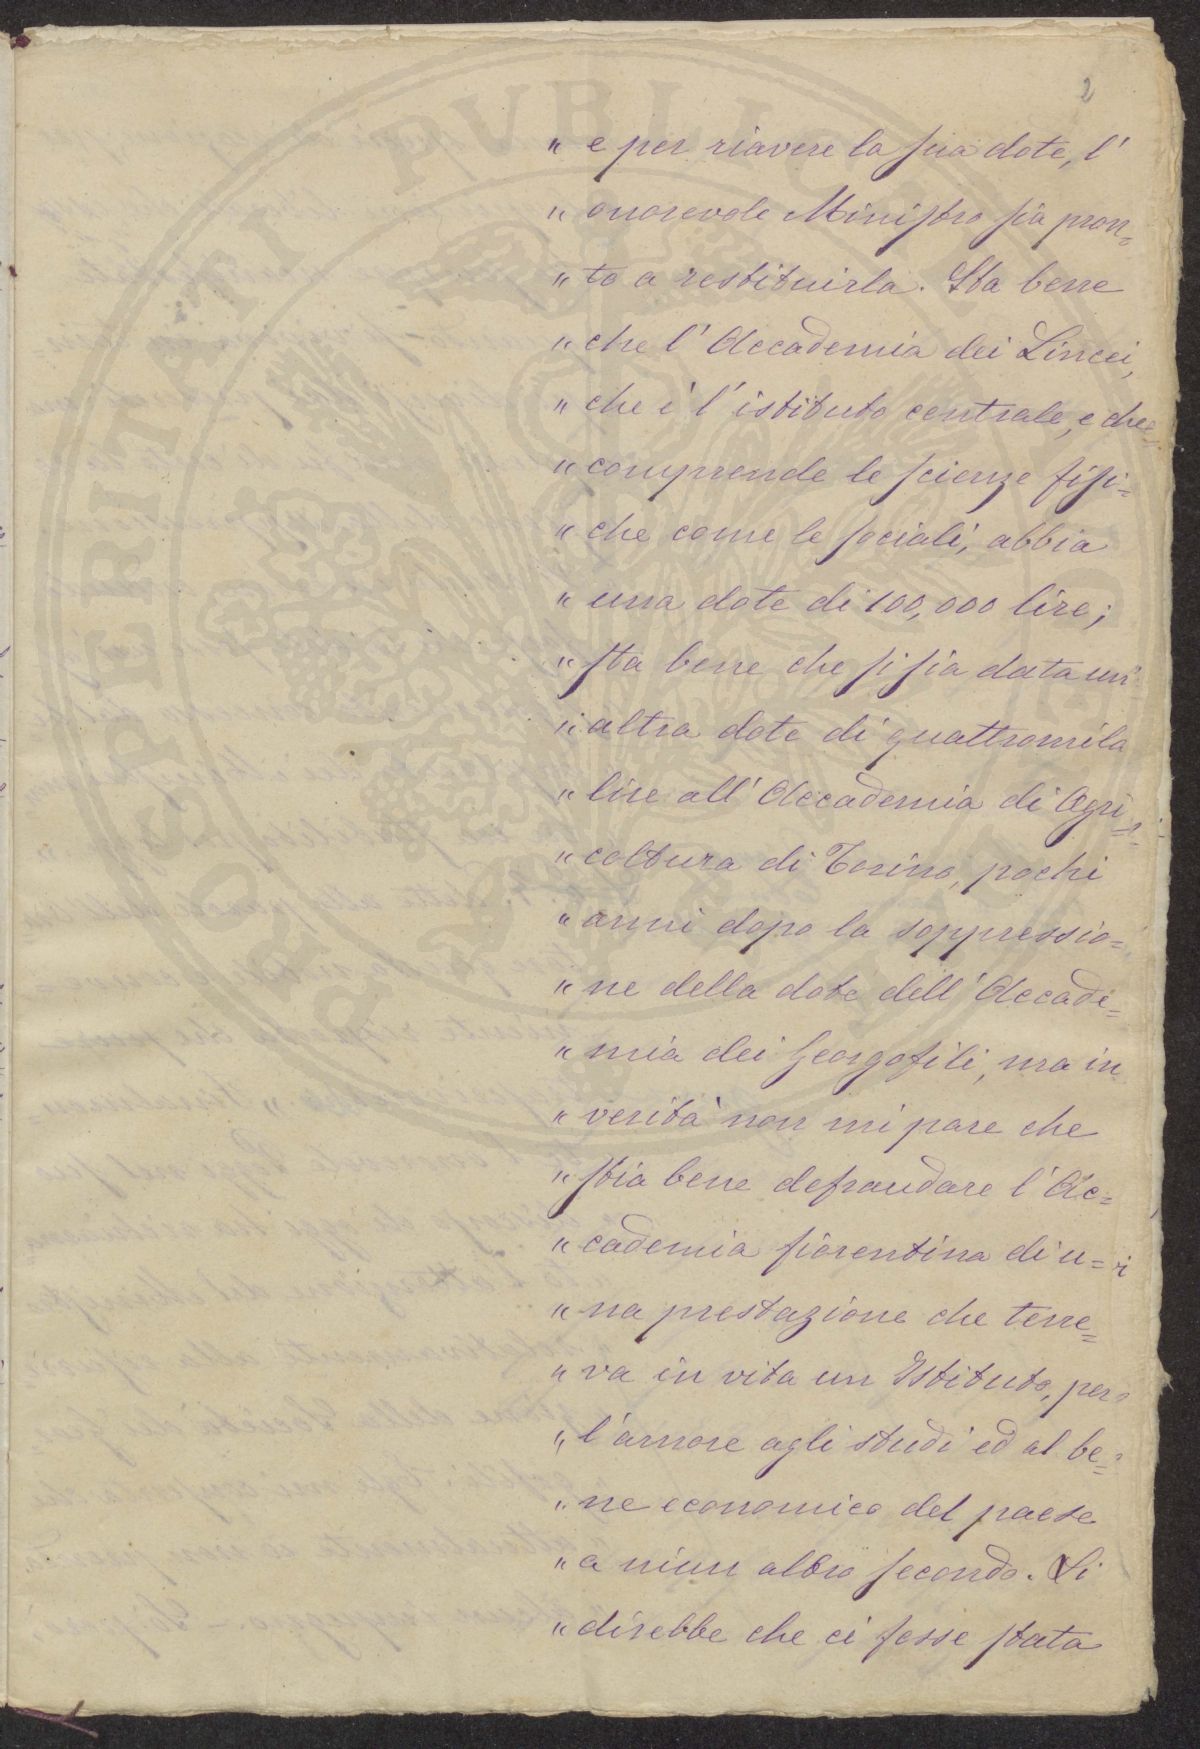 2
" e per riavere la sua dote, l'
" onorevole Ministro sia pron=
" to a restituirla. Sta bene
" che l'Accademia dei Lincei,
" che è l'istituto centrale, e che
" comprende le scienze fisi=
" che come le sociali, abbia
" una dote di 100,000 lire;
" sta bene che si sia data un'
" altra dote di quattromila
" lire all'Accademia di Agri=
" coltura di Torino, pochi
" anni dopo la soppressio=
" ne della dote dell'Accade=
" mia dei Georgofili, ma in
" verità non mi pare che
" stia bene defraudare l'Ac=
" cademia fiorentina di u=
" na prestazione che tene=
" va in vita un Istituto, per
" l'amore agli studi ed al be=
" ne economico del paese
" a niun altro secondo. Si
" direbbe che ci fosse stata